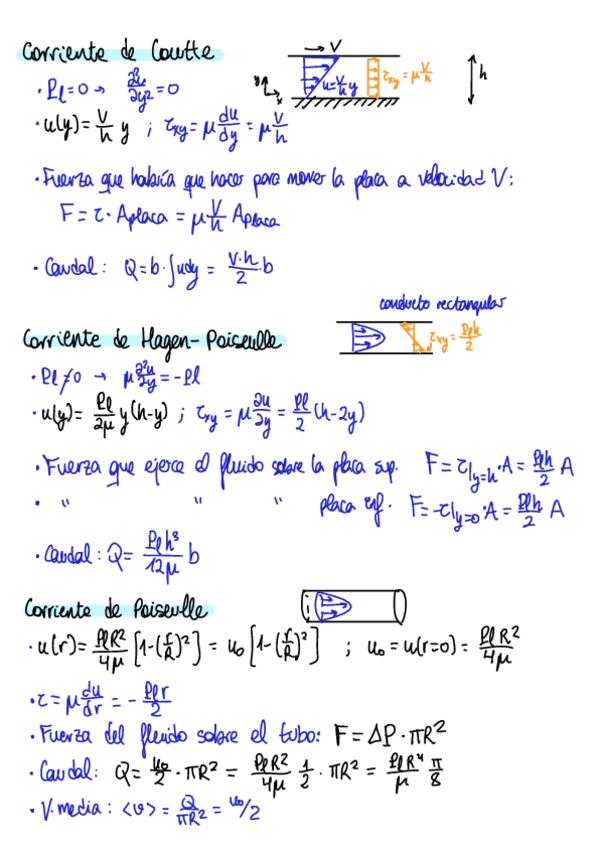 Corriente de Coutte
→ V
u=V/h y
τxy = μ V/h
h
y
x
· Pl=0 → ∂²u/∂y²=0
· u(y)= V/h y ; τxy= μ du/dy = μ V/h
· Fuerza que habría que hacer para mover la placa a velocidad V:
F= τ· Aplaca = μ V/h Aplaca
· Caudal: Q=b·∫udy = V·h/2 ·b
conducto rectangular
Corriente de Hagen-Poiseulle
τxy= Plh/2
· Pl≠0 → μ ∂²u/∂y = -Pl
· u(y)= Pl/2μ y(h-y) ; τxy = μ ∂u/∂y = Pl/2 (h-2y)
· Fuerza que ejerce el fluido sobre la placa sup. F= τ|y=h ·A= Plh/2 A
· " " " placa inf. F= -τ|y=0 ·A = Plh/2 A
· Caudal: Q= Plh³/12μ b
Corriente de Poiseulle
· u(r)= PlR²/4μ [1-(r/R)²] = u₀ [1-(r/R)²] ; u₀ = u(r=0) = PlR²/4μ
· τ= μ du/dr = - Plr/2
· Fuerza del fluido sobre el tubo: F= ΔP·πR²
· Caudal: Q= u₀/2 · πR² = PlR²/4μ 1/2 · πR² = PlR⁴/μ π/8
· V. media: <v> = Q/πR² = u₀/2